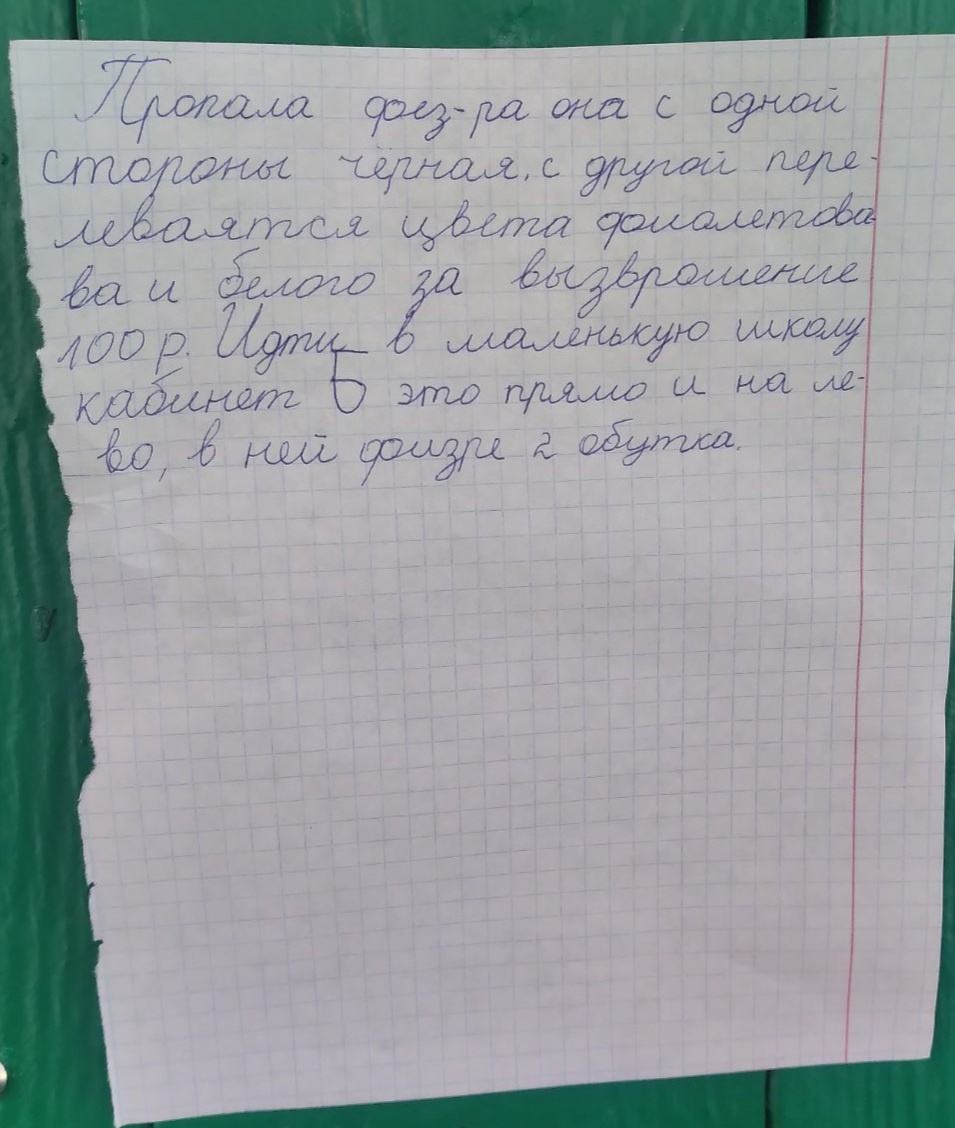 Пропала физ-ра она с одной
стороны чёрная, с другой пере-
леваятся цвета фиолетова
ва и белого за вызврошение
100 р. Идти в маленькую школу
кабинет 5 это прямо и на ле-
во, в ней физре 2 обутка.